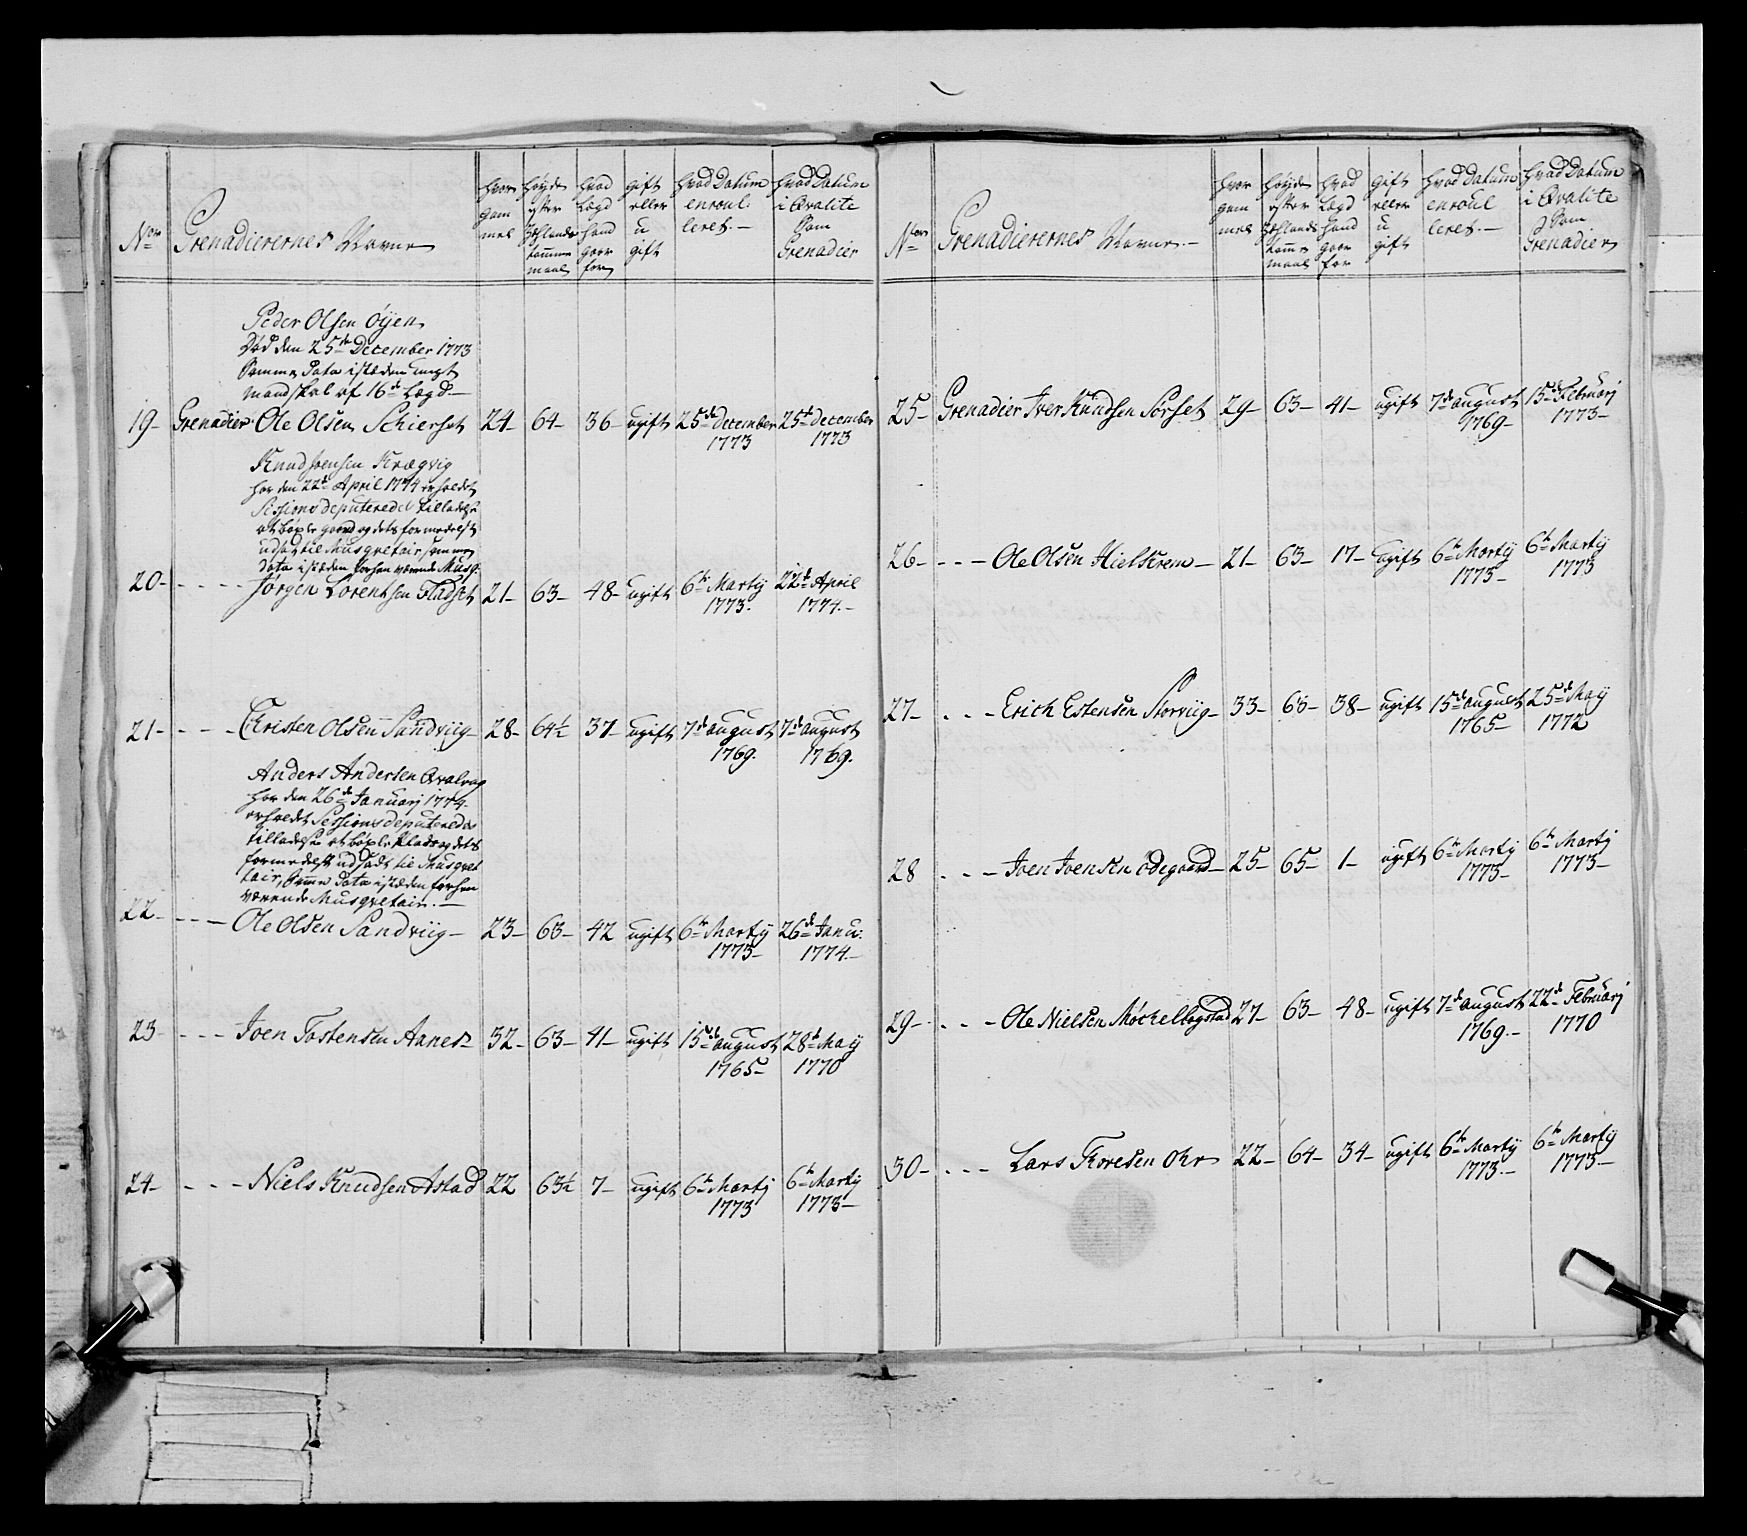 N:ro
Grenadierernes Navne
hvor gam mel
høyde efter Zeslands tomme maal
hvad Legd hand goor for
gift eller u gift
hvad Datum enroul leret.
hvad Datum i Qvalite som Grenadier
Peder Olsen Øyen
Død den 25de December 1773
Samme Dato isteden
mandskab af 16de Legd
19 Grenadier Ole Olsen Schierset 24 64 36 ugift 25de December 1773 25de december 1773
Knud Joensen Krægvig
har den 22de April 1774 erholdet
Sessions deputeredes tilladelse
at böxle gaard og dets formedelst
udsat til Musqvetair samme
Dato isteden forhen værende Musq:
20 - - - - Jørgen Lorentsen Fladset 21 63 48 ugift 6te Martij 1773. 22de April 1774.
21 - - - - Christen Olsen Sandviig 28 64½ 37 ugift 7de august 1769. 7de august 1769.
Anders Andersen Qvalvog
har den 26de Januarj 1774.
erholdet Sessions deputeredes
tilladelse at böxle Plads og dets
formedelst udsadt til Musqvet
tair, Samme Dato isteden forhen
værende Musqvetair.
22 - - - Ole Olsen Sandviig 23 63 42 ugift 6te Martij 1773 26de Janu: 1774.
23 - - - Joen Tostensen Aanes 32 63 41 ugift 15de august 1765 28de Maij 1770
24 - - - Niels Knudsen Astad 22 63½ 7 ugift 6te Martj 1773 6te Martij 1773
N:ro
Grenadierernes Navne.
hvor gam mel
høyde efter Zeslands tomme maal
hvad Legd hand goor for
gift eller u gift
hvad Datum enroul leret.
hvad Datum i Qvalite som Grenadier
25 Grenadier Iver Knudsen Sorset 29 63 41 ugift 7de august 1769 15de Februarj 1773
26 - - - Ole Olsen Hielseren 21 63 17 ugift 6te Martij 1773 6te Martij 1773
27 - - - Erich Estensen Storviig 33 63 38 ugift 15de august 1765 25de Maij 1772
28 - - - Joen Joensen Ødegaard 25 65 1 ugift 6te Martij 1773 6te Martij 1773
29 - - - Ole Nielsen Møchelbogstad 27 63 48 ugift 7de august 1769. 22de Februarj 1770
30 - - - Lars Thoresen Ohr 22 64 34 ugift 6te Martij 1773 6te Martij 1773